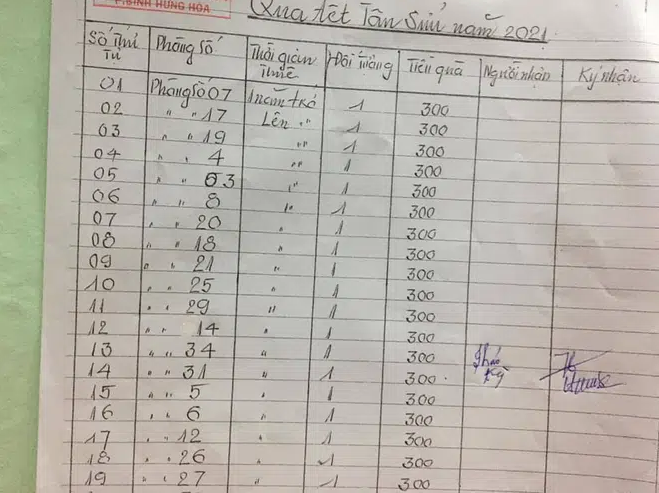 P.BÌNH HƯNG HÒA
Quà tết Tân Sửu năm 2021
Số Thứ Tự Phòng Số Thời gian Thuê Đối tượng Tiền quà Người nhận Ký nhận
01 Phòng số 07 1 năm trở 1 300
02 " " 17 Lên " 1 300
03 " " 19 " 1 300
04 " " 4 " 1 300
05 " " 63 " 1 300
06 " " 8 " 1 300
07 " " 20 " 1 300
08 " " 18 " 1 300
09 " " 21 " 1 300
10 " " 25 " 1 300
11 " " 29 " 1 300
12 " " 14 " 1 300
13 " " 34 " 1 300
14 " " 31 " 1 300
15 " " 5 " 1 300
16 " " 6 " 1 300
17 " " 12 " 1 300
18 " " 26 " 1 300
19 " " 27 " 1 300